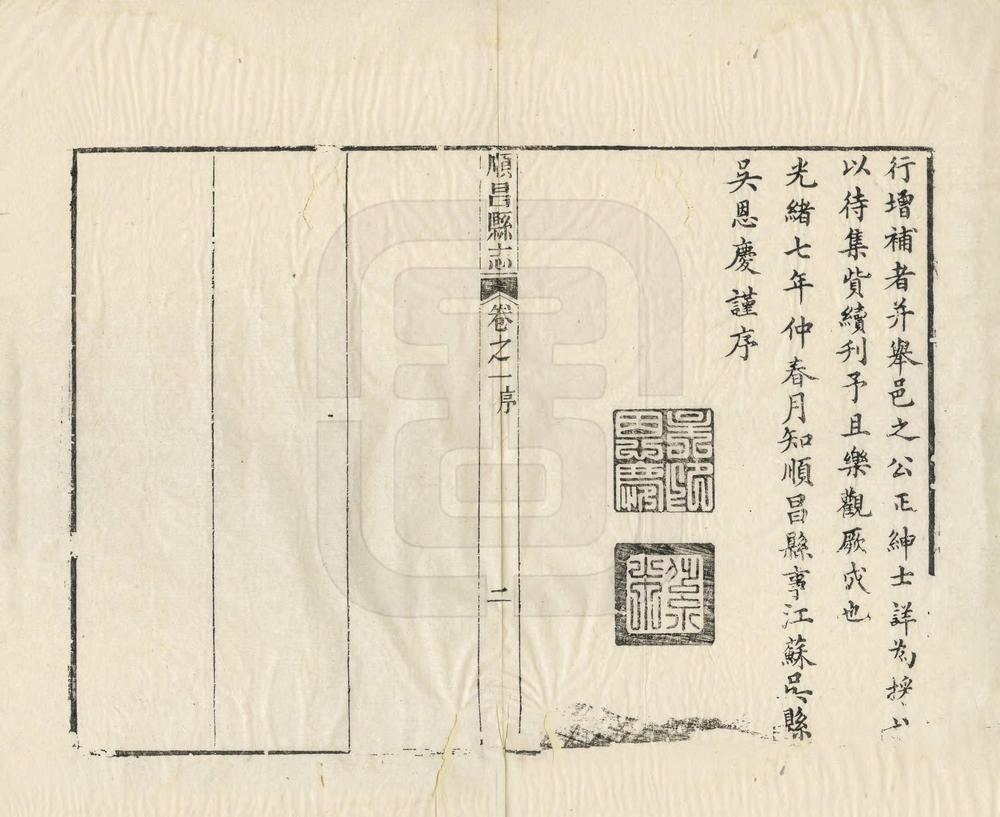 行增補者并舉邑之公正紳士詳為採
以待集貲續刋予且樂觀厥成也
光緒七年仲春月知順昌縣事江蘇吳縣
吳恩慶謹序
順昌縣志
卷之一序
二